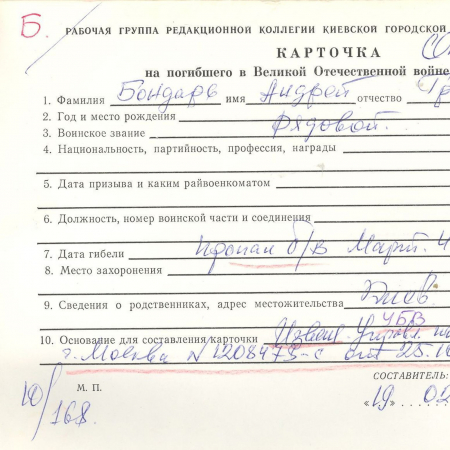 Б.
РАБОЧАЯ ГРУППА РЕДАКЦИОННОЙ КОЛЛЕГИИ КИЕВСКОЙ ГОРОДСКОЙ
КАРТОЧКА
на погибшего в Великой Отечественной войне
1. Фамилия Бондарь имя Андрей отчество Гр
2. Год и место рождения
3. Воинское звание Рядовой.
4. Национальность, партийность, профессия, награды
5. Дата призыва и каким райвоенкоматом
6. Должность, номер воинской части и соединения
7. Дата гибели Пропал б/в Март. 4
8. Место захоронения
9. Сведения о родственниках, адрес местожительства
УБВ
10. Основание для составления карточки Извещ.
г. Москва N 1208473-с от 25.10
М. П.
СОСТАВИТЕЛЬ:
"19" 02
10/168.